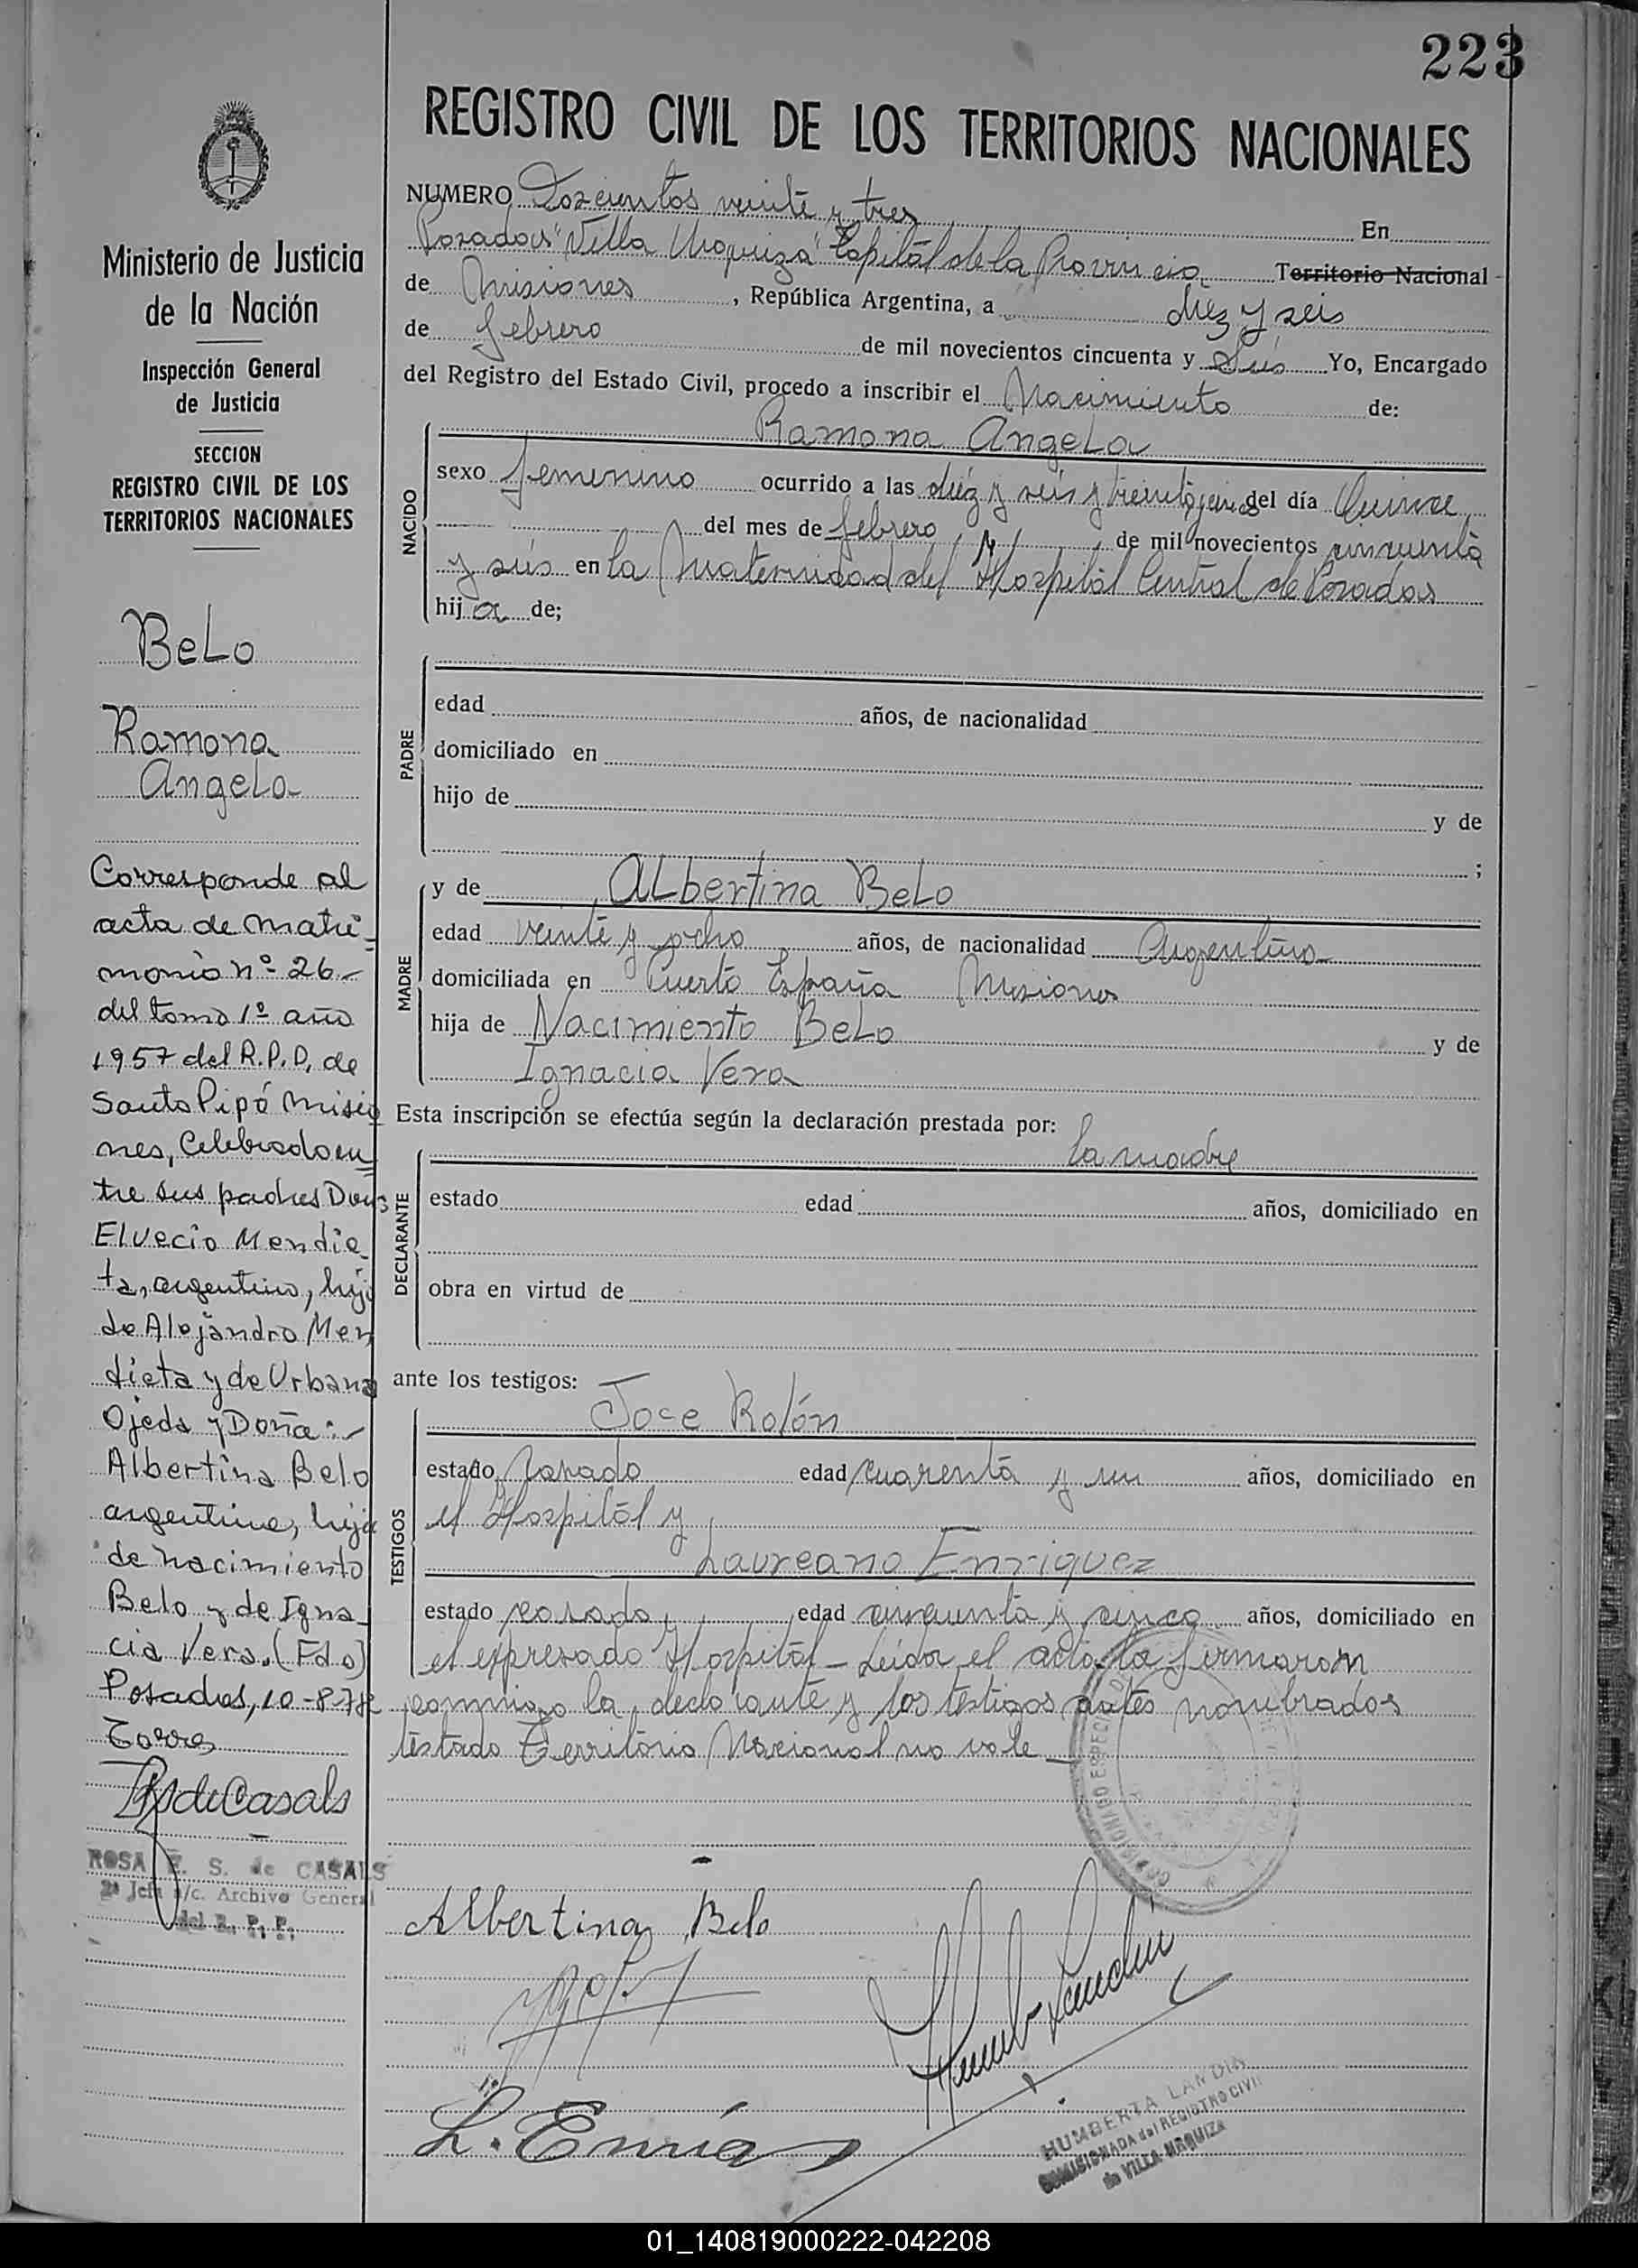 223
REGISTRO CIVIL DE LOS TERRITORIOS NACIONALES
NUMERO Doscientos veinte y tres En
Posadas "Villa Urquiza" Capital de la Provincia Territorio Nacional
de Misiones, República Argentina, a diez y seis
de febrero de mil novecientos cincuenta y seis Yo, Encargado
del Registro del Estado Civil, procedo a inscribir el Nacimiento de:
Ramona Angela
NACIDO
sexo femenino ocurrido a las diéz y seis y treinta del día Quince
del mes de febrero de mil novecientos cincuenta
y seis en la Maternidad del Hospital Central de Posadas
hija de;
PADRE
edad años, de nacionalidad
domiciliado en
hijo de y de
;
MADRE
y de Albertina Belo
edad veinte y ocho años, de nacionalidad Argentina
domiciliada en Puerto España Misiones
hija de Nacimiento Belo y de
Ignacia Vera
Esta inscripción se efectúa según la declaración prestada por:
la madre
DECLARANTE
estado edad años, domiciliado en
obra en virtud de
ante los testigos:
Jose Rolón
TESTIGOS
estado casado edad cuarenta y un años, domiciliado en
el Hospital y
Laureano Enriquez
estado casado, edad cincuenta y cinco años, domiciliado en
el expresado Hospital - Leida el acta la firmaron
conmigo la declarante y los testigos antes nombrados
testado Territorio Nacional no vale
Albertina Belo
L. Enriq
HUMBERTA LANDIN
COMISIONADA del REGISTRO CIVIL
de VILLA URQUIZA
Ministerio de Justicia
de la Nación
Inspección General
de Justicia
SECCION
REGISTRO CIVIL DE LOS
TERRITORIOS NACIONALES
Belo
Ramona
Angela
Corresponde al
acta de matri-
monio nº 26.-
del tomo 1º año
1957 del R.P.D. de
Santo Pipó Misio
nes, Celebrado en
tre sus padres Don
Elvecio Mendie
ta, argentino, hijo
de Alejandro Men
dieta y de Urbana
Ojeda y Doña:-
Albertina Belo
argentina, hija
de Nacimiento
Belo y de Igna-
cia Vera. (Fdo)
Posadas, 10-8-78
Torres
RS de Casals
ROSA E. S. de CASALS
2ª Jefa a/c. Archivo General
del R. P. P.
01_140819000222-042208